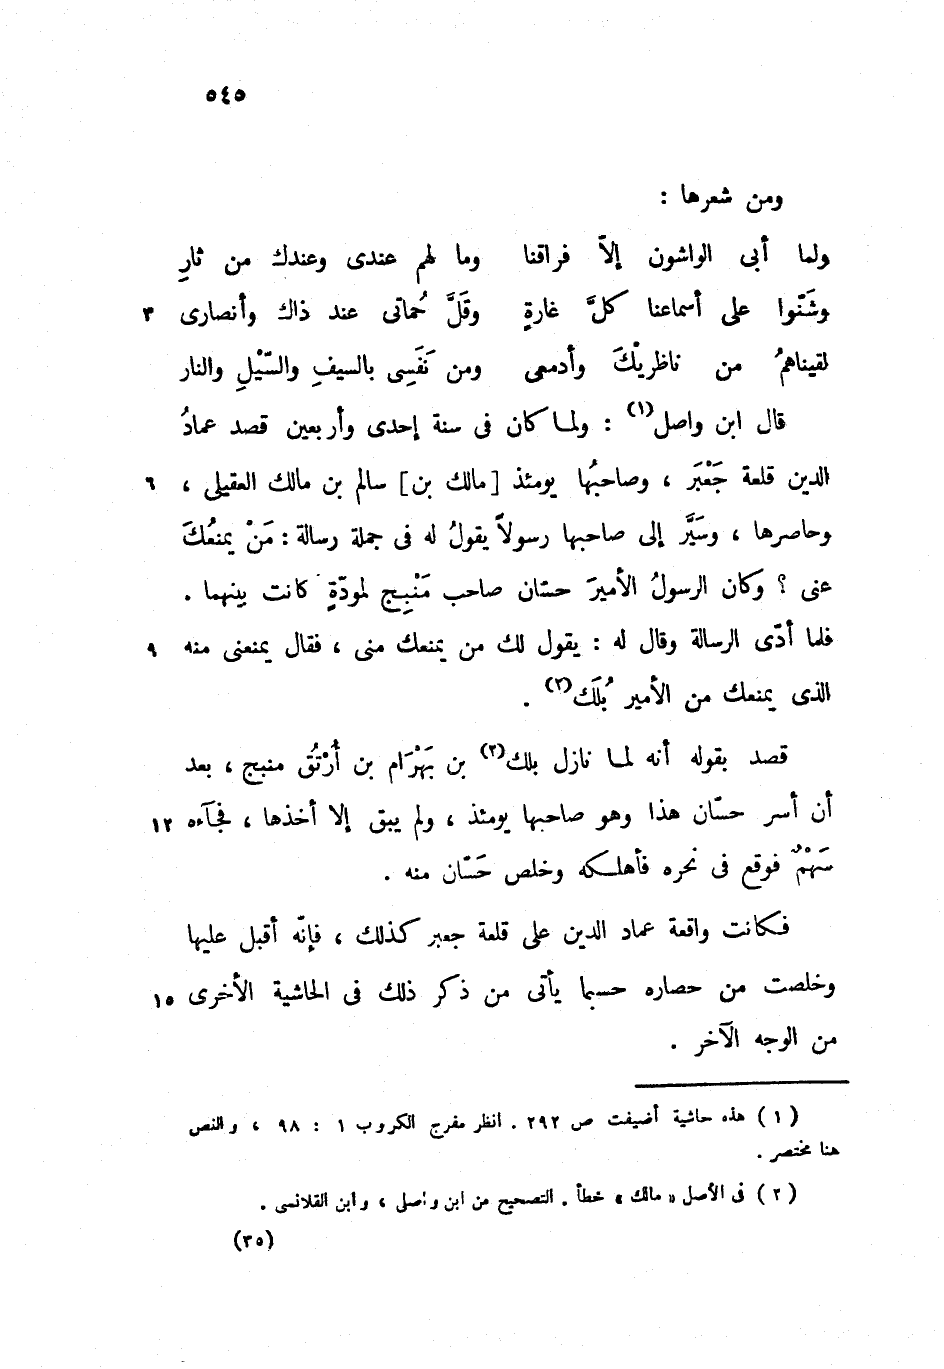 ٥٤٥
ومن شعرها :
ولما أبى الواشون إلاّ فراقنا وما لهم عندى وعندك من ثارِ
وشَنّوا على أسماعنا كلَّ غارةٍ وقَلَّ حُماتى عند ذاك وأنصارى ٣
لقيناهمُ من ناظريْكَ وأدمعى ومن نَفَسِى بالسيفِ والسّيْلِ والنار
قال ابن واصل(١) : ولما كان فى سنة إحدى وأربعين قصد عمادُ
الدين قلعة جَعْبَر ، وصاحبُها يومئذ [مالك بن] سالم بن مالك العقيلى ، ٦
وحاصرها ، وسَيَّر إلى صاحبها رسولاً يقولُ له فى جملة رسالة : مَنْ يمنعُكَ
عنى ؟ وكان الرسولُ الأميرَ حسّان صاحب مَنْبِج لمودّةٍ كانت بينهما .
فلما أدّى الرسالة وقال له : يقول لك من يمنعك منى ، فقال يمنعنى منه ٩
الذى يمنعك من الأمير بُلَك(٢) .
قصد بقوله أنه لما نازل بلك(٢) بن بَهْرَام بن أُرْتُق منبج ، بعد
أن أسر حسّان هذا وهو صاحبها يومئذ ، ولم يبق إلا أخذها ، فجآءه ١٢
سَهْمٌ فوقع فى نحره فأهلكه وخلص حَسّان منه .
فكانت واقعة عماد الدين على قلعة جعبر كذلك ، فإنّه أقبل عليها
وخلصت من حصاره حسبما يأتى من ذكر ذلك فى الحاشية الأخرى ١٥
من الوجه الآخر .
(١) هذه حاشية أضيفت ص ٢٩٢ . انظر مفرج الكروب ١ : ٩٨ ، والنص
هنا مختصر .
(٢) فى الأصل « مالك » خطأ . التصحيح من ابن واصلى ، وابن القلانسى .
(٣٥)